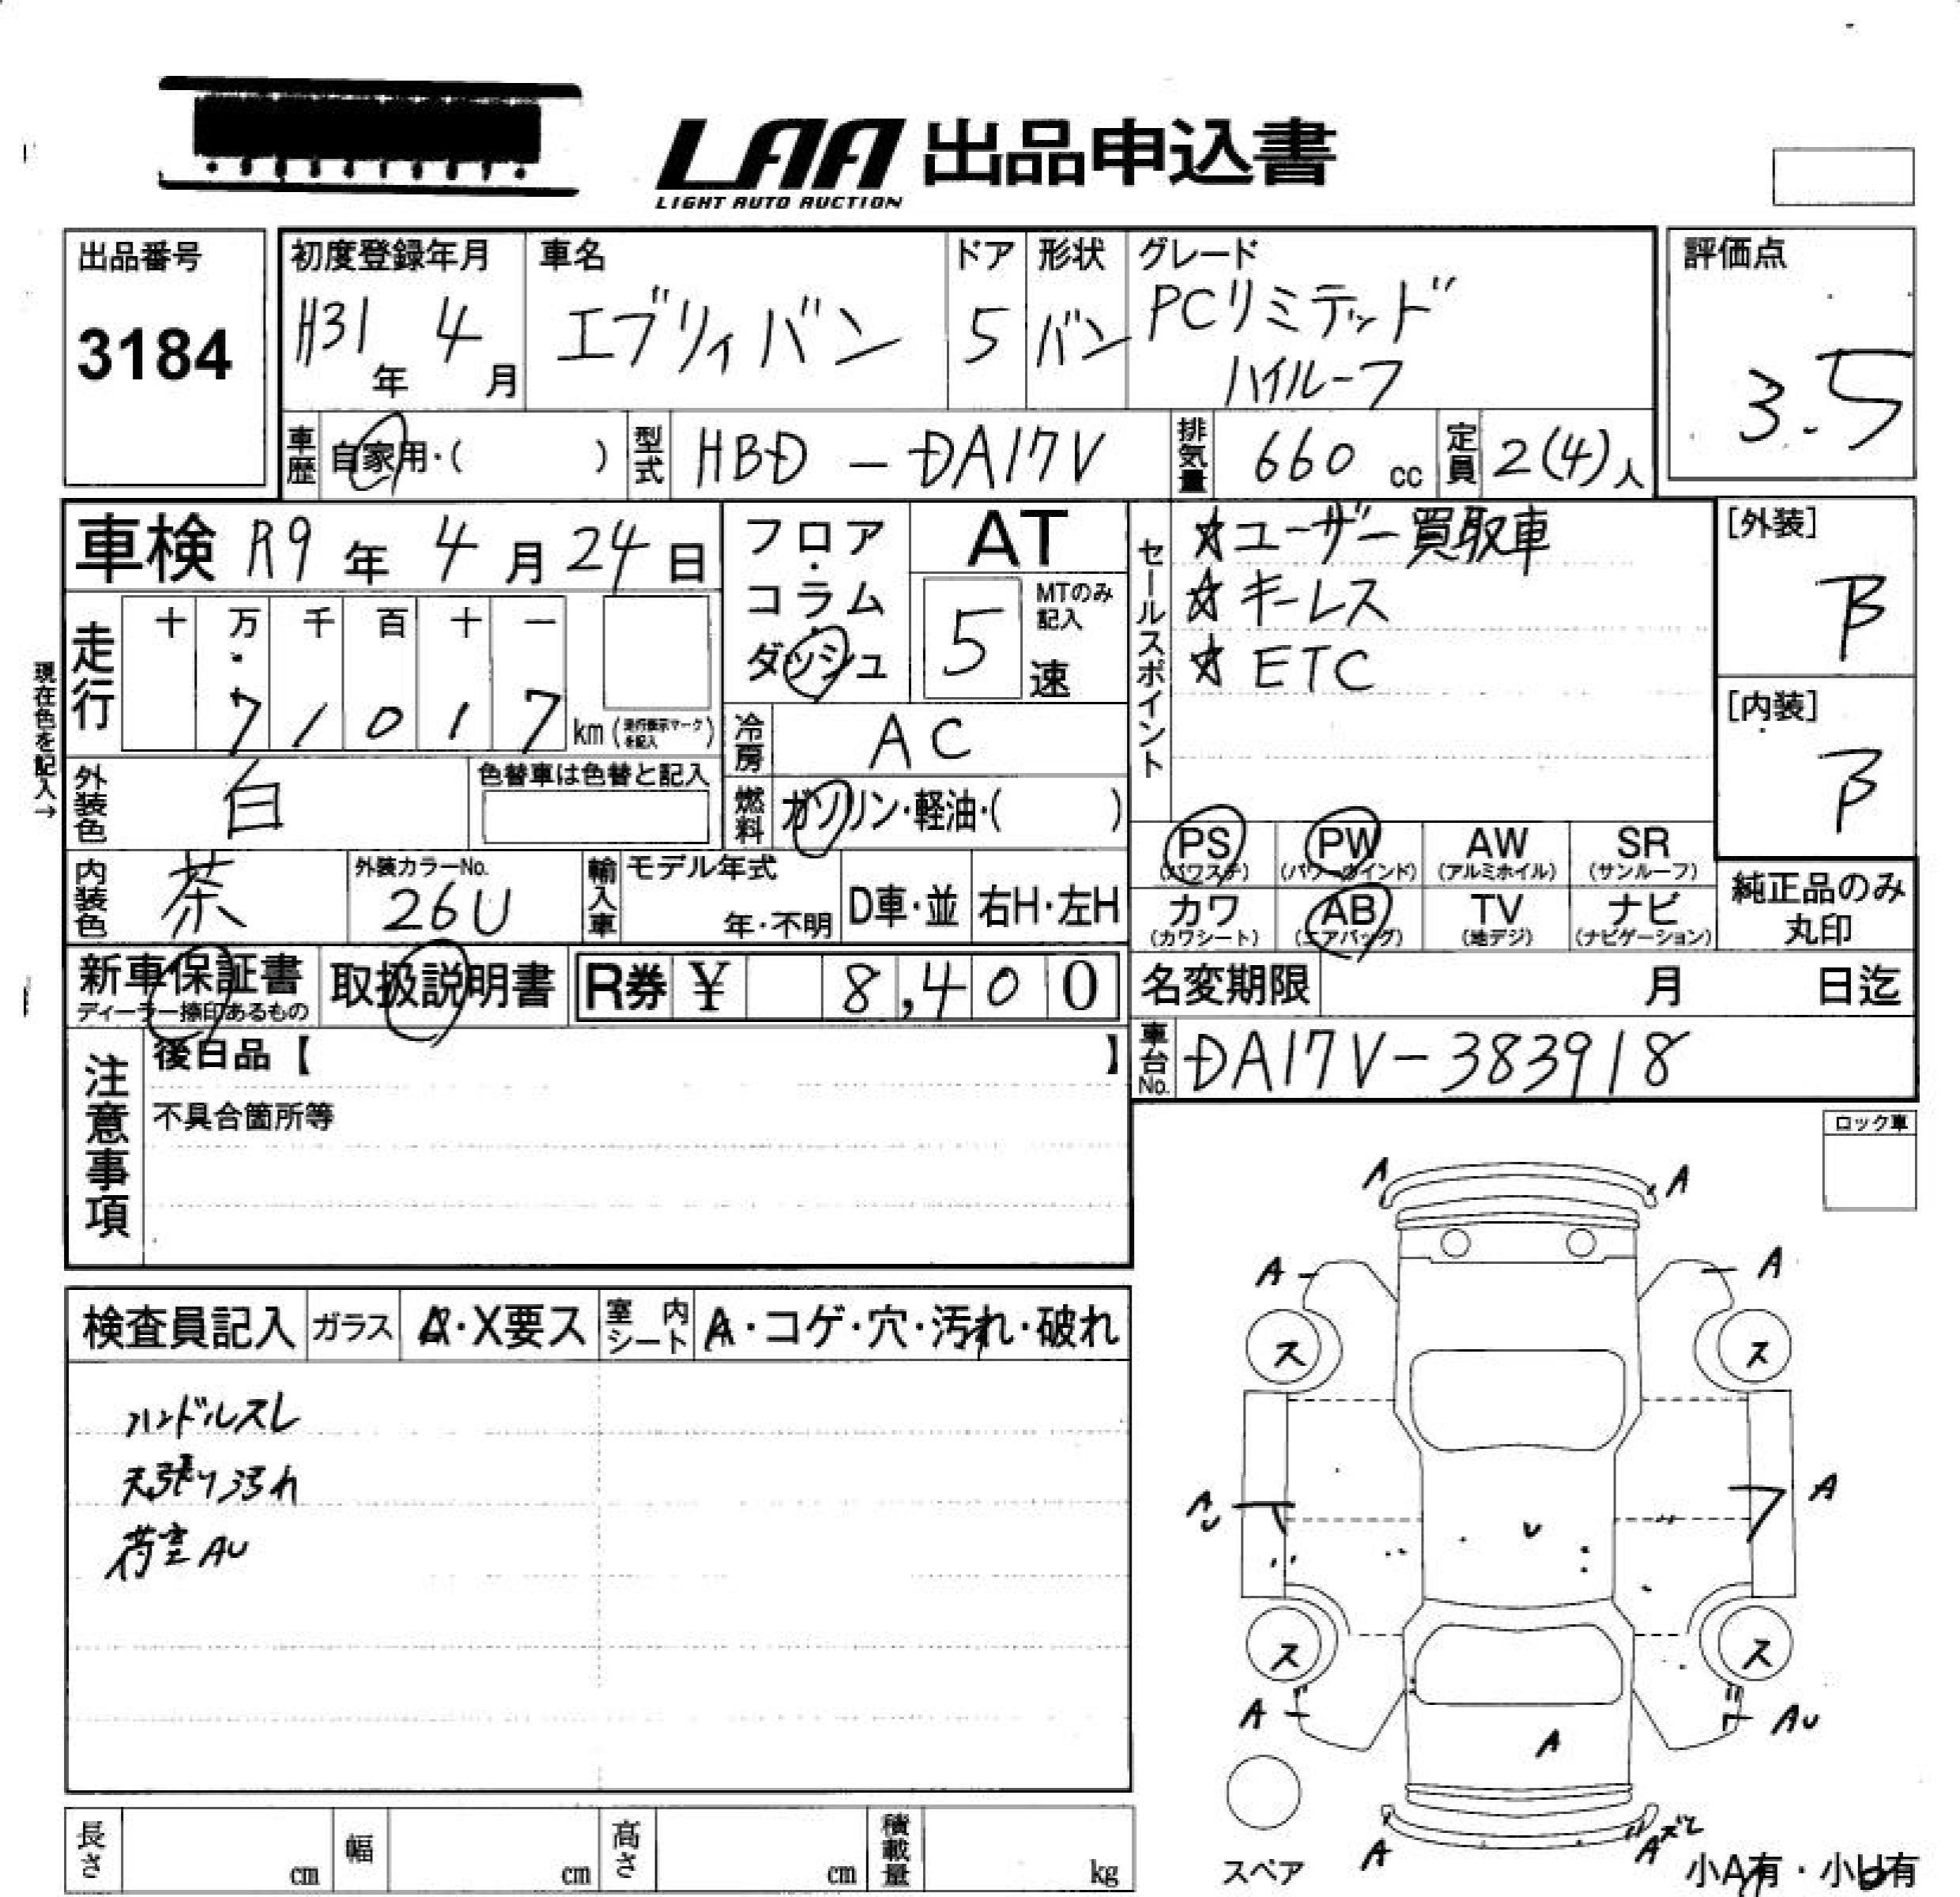 LAA 出品申込書
LIGHT AUTO AUCTION
出品番号
3184
初度登録年月
H31年 4月
車名
エブリィバン
ドア
5
形状
バン
グレード
PCリミテッド
ハイルーフ
評価点
3.5
車歴
自家用・( )
型式
HBD - DA17V
排気量
660 cc
定員
2(4)人
車検 R9年 4月 24日
フロア・コラム・ダッシュ
AT
5速
MTのみ記入
走行
十 万 千 百 十 一
7 1 0 1 7 km (走行表示マークを記入)
現在色を記入→
冷房
AC
燃料
ガソリン・軽油・( )
外装色
白
色替車は色替と記入
内装色
茶
外装カラーNo.
26U
輸入車
モデル年式
年・不明
D車・並
右H・左H
セールスポイント
☆ユーザー買取車
☆キーレス
☆ETC
[外装]
B
[内装]
B
PS (パワステ)
PW (パワーウインド)
AW (アルミホイル)
SR (サンルーフ)
カワ (カワシート)
AB (エアバッグ)
TV (地デジ)
ナビ (ナビゲーション)
純正品のみ丸印
新車保証書
ディーラー捺印あるもの
取扱説明書
R券 ¥ 8,400
名変期限 月 日迄
車台No.
DA17V-383918
注意事項
後日品【 】
不具合箇所等
ロック車
検査員記入
ガラス
A・X要ス
室内シート
A・コゲ・穴・汚れ・破れ
ハンドルスレ
天張り汚れ
荷室AU
A A
A A
ス ス
AU U A
ス ス
A AU
A
A Aズレ
スペア
小A有・小U有
長さ cm
幅 cm
高さ cm
積載量 kg